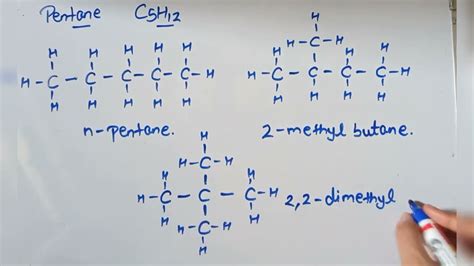 Pentane C5H12
H H H H H
H - C - C - C - C - C - H
H H H H H
n-pentane.
H
H - C - H
H H H
H - C - C - C - C - H
H H H H
2-methyl butane.
H
H - C - H
H H
H - C - C - C - H
H H
H - C - H
H
2,2-dimethyl